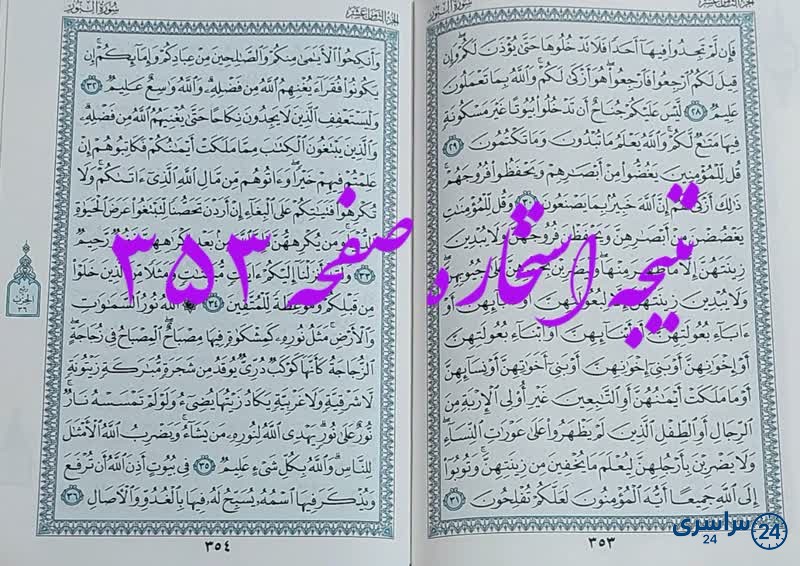 سورة النور
الجزء الثامن عشر
فَإِن لَّمْ تَجِدُوا۟ فِيهَآ أَحَدًا فَلَا تَدْخُلُوهَا حَتَّىٰ يُؤْذَنَ لَكُمْ ۖ وَإِن
قِيلَ لَكُمُ ٱرْجِعُوا۟ فَٱرْجِعُوا۟ ۖ هُوَ أَزْكَىٰ لَكُمْ ۚ وَٱللَّهُ بِمَا تَعْمَلُونَ
عَلِيمٌ ٢٨ لَّيْسَ عَلَيْكُمْ جُنَاحٌ أَن تَدْخُلُوا۟ بُيُوتًا غَيْرَ مَسْكُونَةٍ
فِيهَا مَتَٰعٌ لَّكُمْ ۚ وَٱللَّهُ يَعْلَمُ مَا تُبْدُونَ وَمَا تَكْتُمُونَ ٢٩
قُل لِّلْمُؤْمِنِينَ يَغُضُّوا۟ مِنْ أَبْصَٰرِهِمْ وَيَحْفَظُوا۟ فُرُوجَهُمْ ۚ
ذَٰلِكَ أَزْكَىٰ لَهُمْ ۗ إِنَّ ٱللَّهَ خَبِيرٌۢ بِمَا يَصْنَعُونَ ٣٠ وَقُل لِّلْمُؤْمِنَٰتِ
يَغْضُضْنَ مِنْ أَبْصَٰرِهِنَّ وَيَحْفَظْنَ فُرُوجَهُنَّ وَلَا يُبْدِينَ
زِينَتَهُنَّ إِلَّا مَا ظَهَرَ مِنْهَا ۖ وَلْيَضْرِبْنَ بِخُمُرِهِنَّ عَلَىٰ جُيُوبِهِنَّ ۖ
وَلَا يُبْدِينَ زِينَتَهُنَّ إِلَّا لِبُعُولَتِهِنَّ أَوْ ءَابَآئِهِنَّ أَوْ
ءَابَآءِ بُعُولَتِهِنَّ أَوْ أَبْنَآئِهِنَّ أَوْ أَبْنَآءِ بُعُولَتِهِنَّ
أَوْ إِخْوَٰنِهِنَّ أَوْ بَنِىٓ إِخْوَٰنِهِنَّ أَوْ بَنِىٓ أَخَوَٰتِهِنَّ أَوْ نِسَآئِهِنَّ
أَوْ مَا مَلَكَتْ أَيْمَٰنُهُنَّ أَوِ ٱلتَّٰبِعِينَ غَيْرِ أُو۟لِى ٱلْإِرْبَةِ مِنَ
ٱلرِّجَالِ أَوِ ٱلطِّفْلِ ٱلَّذِينَ لَمْ يَظْهَرُوا۟ عَلَىٰ عَوْرَٰتِ ٱلنِّسَآءِ ۖ
وَلَا يَضْرِبْنَ بِأَرْجُلِهِنَّ لِيُعْلَمَ مَا يُخْفِينَ مِن زِينَتِهِنَّ ۚ وَتُوبُوٓا۟
إِلَى ٱللَّهِ جَمِيعًا أَيُّهَ ٱلْمُؤْمِنُونَ لَعَلَّكُمْ تُفْلِحُونَ ٣١
٣٥٣
الجزء الثامن عشر
سورة النور
وَأَنكِحُوا۟ ٱلْأَيَٰمَىٰ مِنكُمْ وَٱلصَّٰلِحِينَ مِنْ عِبَادِكُمْ وَإِمَآئِكُمْ ۚ إِن
يَكُونُوا۟ فُقَرَآءَ يُغْنِهِمُ ٱللَّهُ مِن فَضْلِهِۦ ۗ وَٱللَّهُ وَٰسِعٌ عَلِيمٌ ٣٢
وَلْيَسْتَعْفِفِ ٱلَّذِينَ لَا يَجِدُونَ نِكَاحًا حَتَّىٰ يُغْنِيَهُمُ ٱللَّهُ مِن فَضْلِهِۦ ۗ
وَٱلَّذِينَ يَبْتَغُونَ ٱلْكِتَٰبَ مِمَّا مَلَكَتْ أَيْمَٰنُكُمْ فَكَاتِبُوهُمْ إِنْ
عَلِمْتُمْ فِيهِمْ خَيْرًا ۖ وَءَاتُوهُم مِّن مَّالِ ٱللَّهِ ٱلَّذِىٓ ءَاتَىٰكُمْ ۚ وَلَا
تُكْرِهُوا۟ فَتَيَٰتِكُمْ عَلَى ٱلْبِغَآءِ إِنْ أَرَدْنَ تَحَصُّنًا لِّتَبْتَغُوا۟ عَرَضَ ٱلْحَيَوٰةِ
ٱلدُّنْيَا ۚ وَمَن يُكْرِههُّنَّ فَإِنَّ ٱللَّهَ مِنۢ بَعْدِ إِكْرَٰهِهِنَّ غَفُورٌ رَّحِيمٌ
٣٣ وَلَقَدْ أَنزَلْنَآ إِلَيْكُمْ ءَايَٰتٍ مُّبَيِّنَٰتٍ وَمَثَلًا مِّنَ ٱلَّذِينَ خَلَوْا۟
مِن قَبْلِكُمْ وَمَوْعِظَةً لِّلْمُتَّقِينَ ٣٤ ۞ ٱللَّهُ نُورُ ٱلسَّمَٰوَٰتِ
وَٱلْأَرْضِ ۚ مَثَلُ نُورِهِۦ كَمِشْكَوٰةٍ فِيهَا مِصْبَاحٌ ۖ ٱلْمِصْبَاحُ فِى زُجَاجَةٍ ۖ
ٱلزُّجَاجَةُ كَأَنَّهَا كَوْكَبٌ دُرِّىٌّ يُوقَدُ مِن شَجَرَةٍ مُّبَٰرَكَةٍ زَيْتُونَةٍ
لَّا شَرْقِيَّةٍ وَلَا غَرْبِيَّةٍ يَكَادُ زَيْتُهَا يُضِىٓءُ وَلَوْ لَمْ تَمْسَسْهُ نَارٌ ۚ
نُّورٌ عَلَىٰ نُورٍ ۗ يَهْدِى ٱللَّهُ لِنُورِهِۦ مَن يَشَآءُ ۚ وَيَضْرِبُ ٱللَّهُ ٱلْأَمْثَٰلَ
لِلنَّاسِ ۗ وَٱللَّهُ بِكُلِّ شَىْءٍ عَلِيمٌ ٣٥ فِى بُيُوتٍ أَذِنَ ٱللَّهُ أَن تُرْفَعَ
وَيُذْكَرَ فِيهَا ٱسْمُهُۥ يُسَبِّحُ لَهُۥ فِيهَا بِٱلْغُدُوِّ وَٱلْءَاصَالِ ٣٦
ربع
الحزب
٣٦
٣٥٤
نتیجه استخاره صفحه ۳۵۳
سراسری 24
24